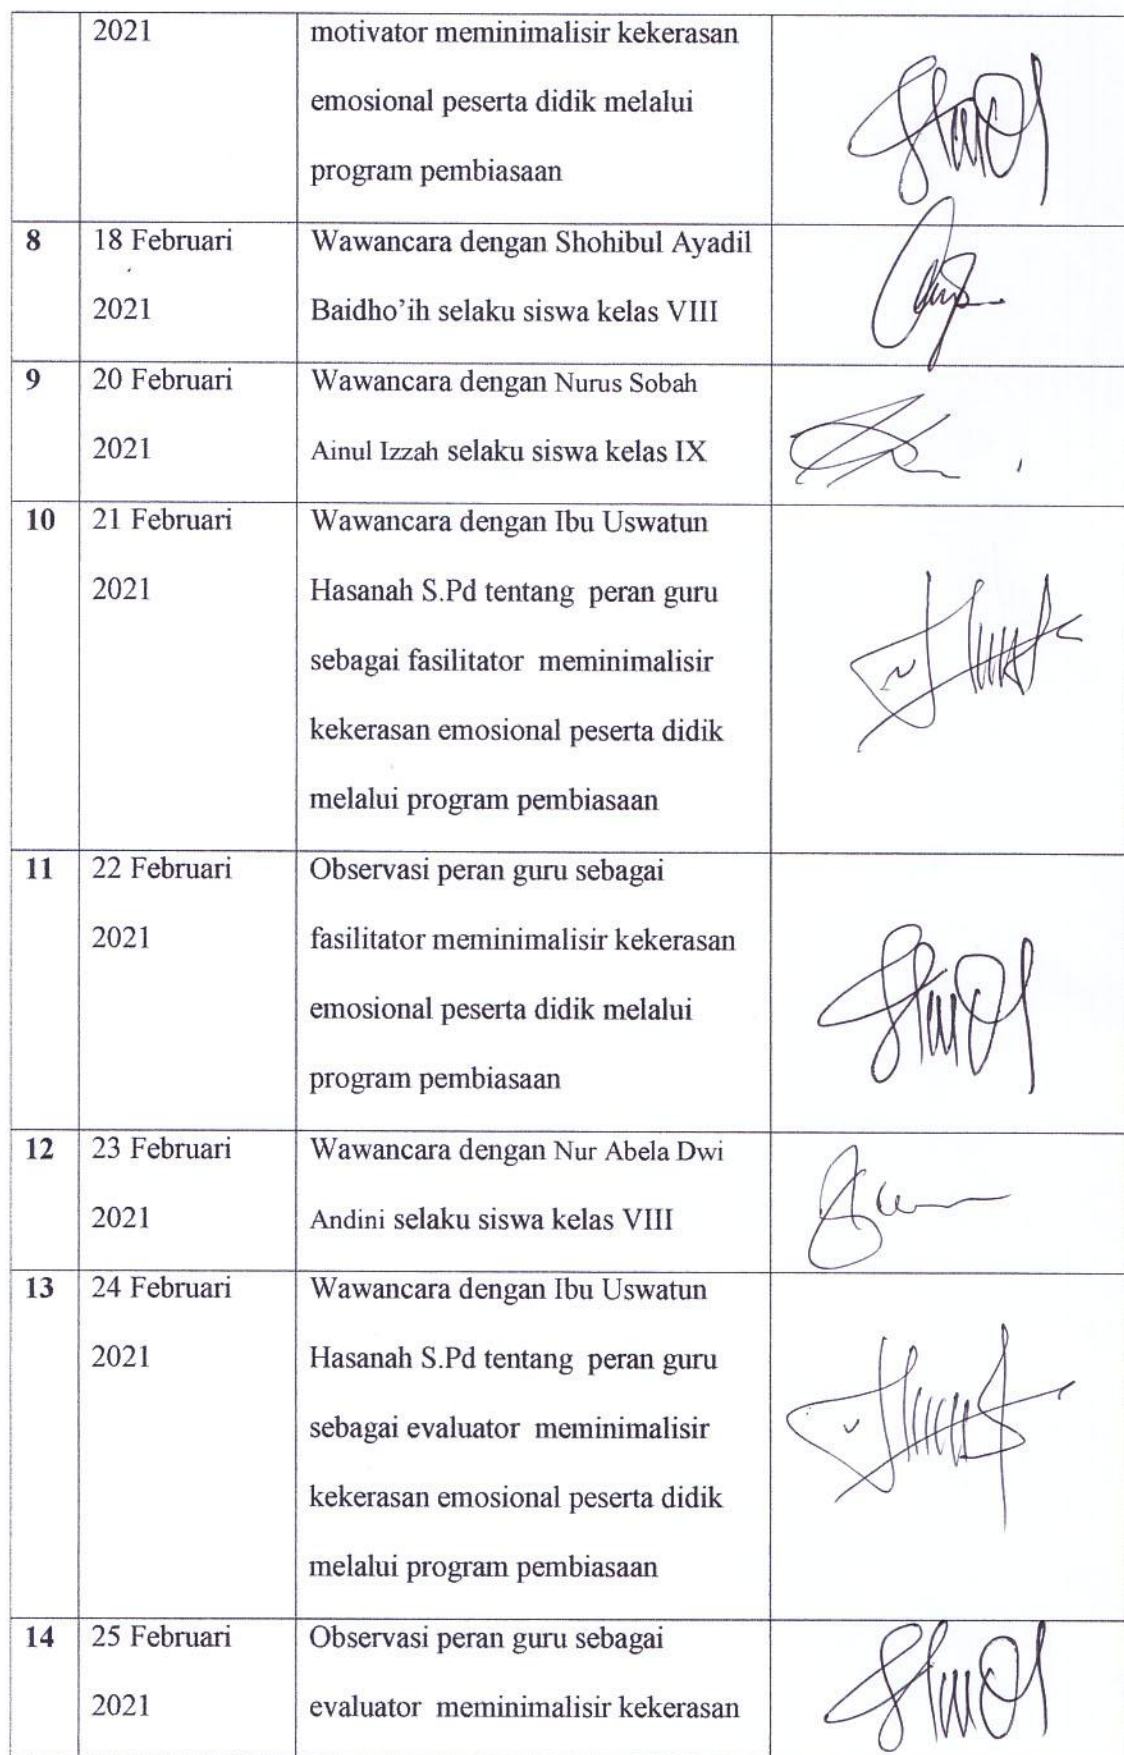 2021 motivator meminimalisir kekerasan
emosional peserta didik melalui
program pembiasaan
8 18 Februari Wawancara dengan Shohibul Ayadil
2021 Baidho'ih selaku siswa kelas VIII
9 20 Februari Wawancara dengan Nurus Sobah
2021 Ainul Izzah selaku siswa kelas IX
10 21 Februari Wawancara dengan Ibu Uswatun
2021 Hasanah S.Pd tentang peran guru
sebagai fasilitator meminimalisir
kekerasan emosional peserta didik
melalui program pembiasaan
11 22 Februari Observasi peran guru sebagai
2021 fasilitator meminimalisir kekerasan
emosional peserta didik melalui
program pembiasaan
12 23 Februari Wawancara dengan Nur Abela Dwi
2021 Andini selaku siswa kelas VIII
13 24 Februari Wawancara dengan Ibu Uswatun
2021 Hasanah S.Pd tentang peran guru
sebagai evaluator meminimalisir
kekerasan emosional peserta didik
melalui program pembiasaan
14 25 Februari Observasi peran guru sebagai
2021 evaluator meminimalisir kekerasan